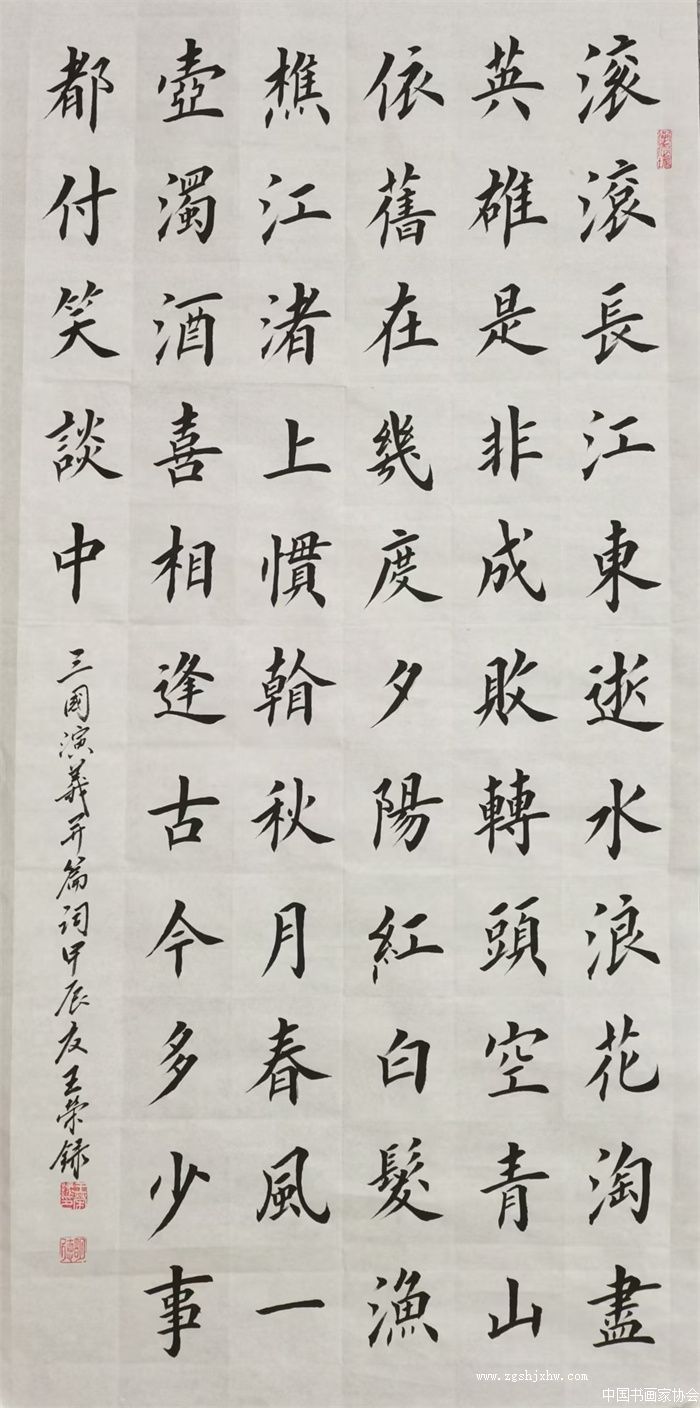 滚滾長江東逝水浪花淘盡
英雄是非成敗轉頭空青山
依舊在幾度夕陽紅白髮漁
樵江渚上慣秋月春風一
壺濁酒喜相逢古今多少事
都付笑談中
三國演義开篇词甲辰王荣録
www.zgshjxhw.com
中国书画家协会